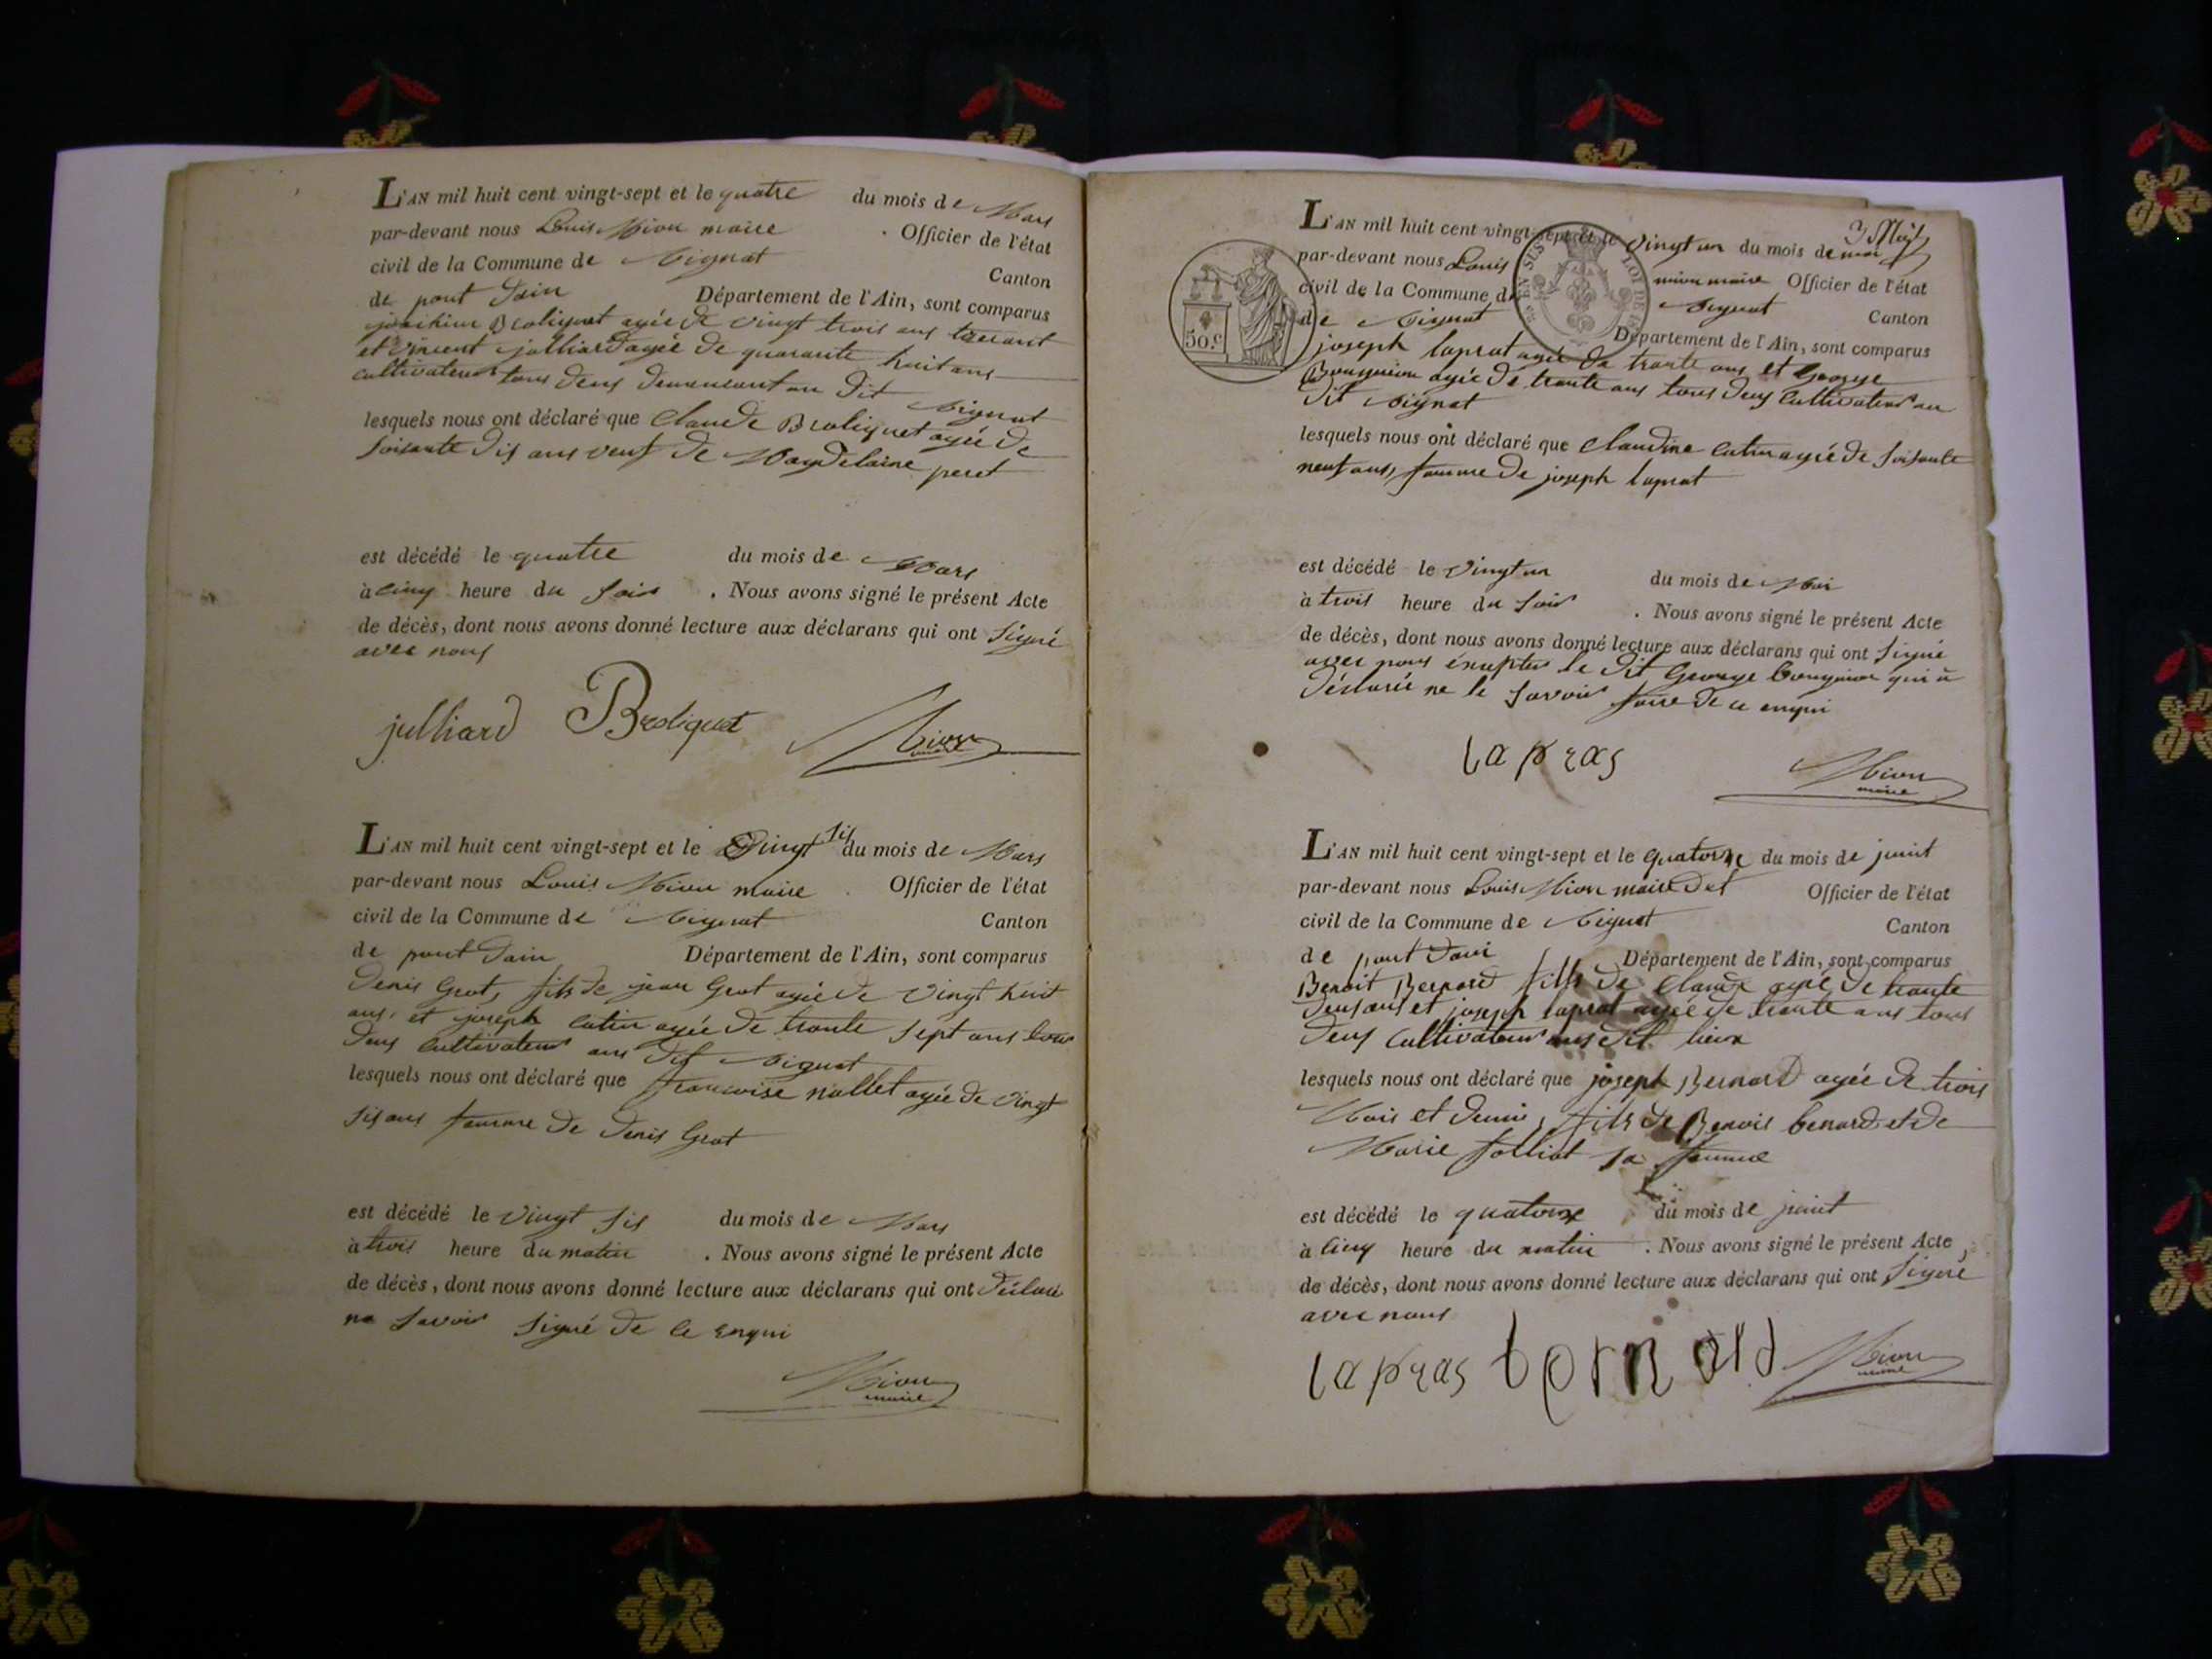 L'AN mil huit cent vingt-sept et le quatre du mois de Mars
par-devant nous Louis Mion maire . Officier de l'état
civil de la Commune de Mignat Canton
de pont Dain Département de l'Ain, sont comparus
Broliquet agée de vingt trois ans
et Vincent jolliard agée de quarante huit ans
cultivateurs tous deus demeurant au dit Mignat
lesquels nous ont déclaré que Claude Broliquet agée de
soisante dis ans veuf de Magdelaine peret
est décédé le quatre du mois de Mars
à cinq heure du soir . Nous avons signé le présent Acte
de décès, dont nous avons donné lecture aux déclarans qui ont signé
avec nous
julliard Broliquet Mion
maire
L'AN mil huit cent vingt-sept et le Vingt sis du mois de Mars
par-devant nous Louis Mion maire . Officier de l'état
civil de la Commune de Mignat Canton
de pont Dain Département de l'Ain, sont comparus
Denis Grot, fils de jean Grot agée de vingt huit
ans, et joseph Cutin agée de trante sept ans tous
deus Cultivateurs aus dit Mignat
lesquels nous ont déclaré que francoise nallet agée de vingt
sis ans famme de Denis Grot
est décédé le vingt sis du mois de Mars
à trois heure du matin . Nous avons signé le présent Acte
de décès, dont nous avons donné lecture aux déclarans qui ont déclaré
ne savoir signé de ce enqui
Mion
maire
3 
L'AN mil huit cent vingt-sept et le vingt un du mois de mai
par-devant nous Louis mion maire Officier de l'état
civil de la Commune de Mignat Canton
de Mignat Département de l'Ain, sont comparus
50 c.
joseph laprat agée de trante ans et George
Bouguion agée de trante ans tous deus Cultivateurs au
dit Mignat
lesquels nous ont déclaré que Claudine Cutin agée de soisante
neuf ans, famme de joseph laprat
est décédé le vingt un du mois de Mai
à trois heure du soir . Nous avons signé le présent Acte
de décès, dont nous avons donné lecture aux déclarans qui ont signé
avec nous le dit George Bouguion qui à
déclaré ne le savoir faire de ce enqui
lapras Mion
maire
L'AN mil huit cent vingt-sept et le quatorze du mois de juint
par-devant nous Louis Mion maire Officier de l'état
civil de la Commune de Mignat Canton
de pont Dain Département de l'Ain, sont comparus
Benoit Bernard fils de Claude agée de trante
deus ans et joseph laprat agée de trante ans tous
deus Cultivateurs aus dit lieux
lesquels nous ont déclaré que joseph Bernard agée de trois
Mois et demis, fils de Benois benard et de
Marie folliat sa femme
est décédé le quatorze du mois de juint
à cinq heure du matin . Nous avons signé le présent Acte
de décès, dont nous avons donné lecture aux déclarans qui ont signé
avec nous
lapras bernard Mion
maire